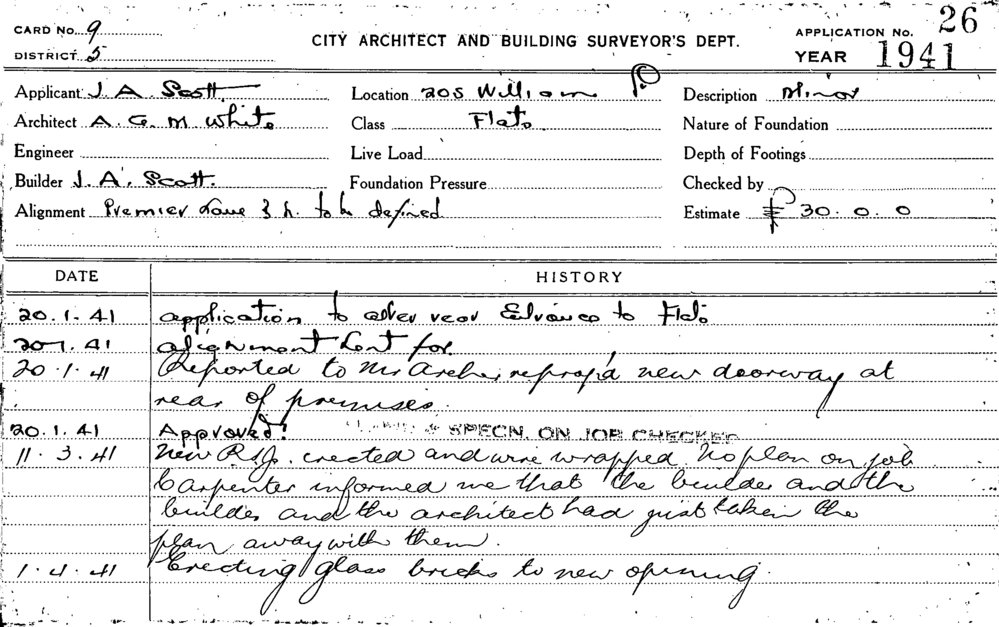 CARD No. 9
DISTRICT 5
CITY ARCHITECT AND BUILDING SURVEYOR'S DEPT.
APPLICATION No. 26
YEAR 1941
Applicant J. A. Scott Location 205 William Description Minor
Architect A. G. M White Class Flats Nature of Foundation
Engineer Live Load Depth of Footings
Builder J. A. Scott. Foundation Pressure Checked by
Alignment Premier Lane to be defined Estimate £ 30. 0. 0
DATE HISTORY
20.1.41 application to alter rear Entrance to Flats
20.1.41 alignment sent for.
20.1.41 Reported to Mr Archer, new doorway at
rear of premises.
20.1.41 Approved! & SPECN. ON JOB CHECKED
11.3.41 New R.S.J. erected and wire wrapped. No plan on job
Carpenter informed me that the builder and the
builder and the architect had just taken the
plan away with them.
1.4.41 Erecting glass bricks to new opening.